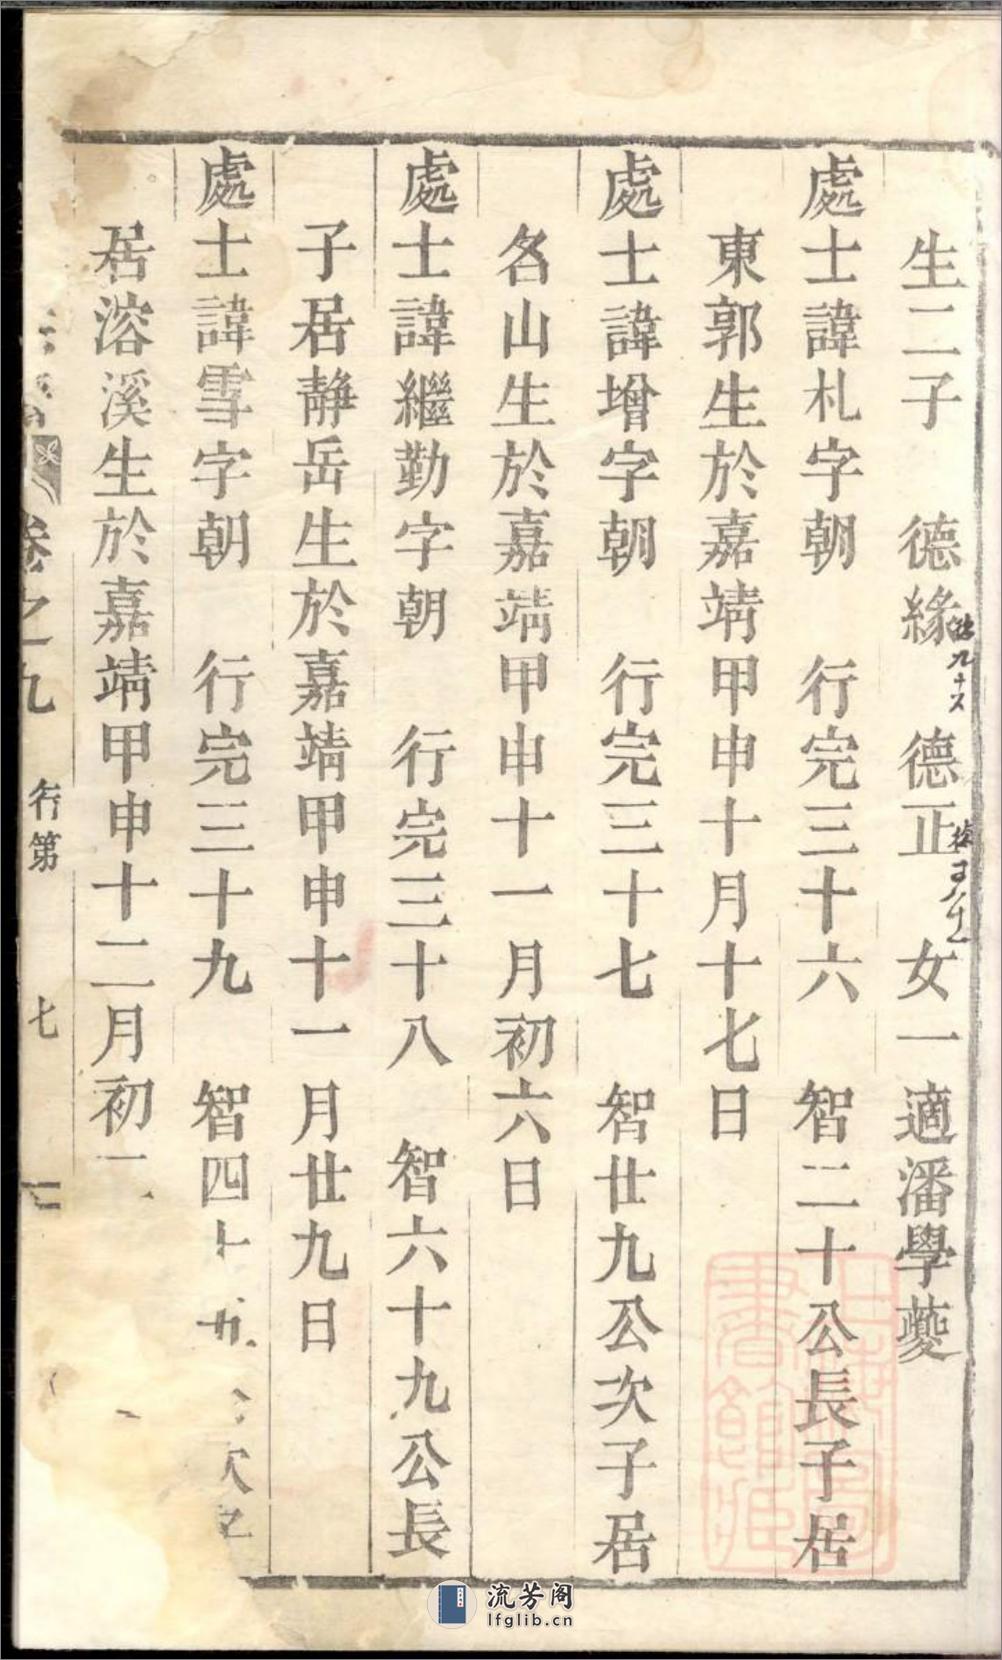 生二子　德緣　德正　女一適潘學夔
處士諱札字朝　行完三十六　智二十公長子居
東郭生於嘉靖甲申十月十七日
處士諱增字朝　行完三十七　智廿九公次子居
名山生於嘉靖甲申十一月初六日
處士諱繼勤字朝　行完三十八　智六十九公長
子居靜岳生於嘉靖甲申十一月廿九日
處士諱雪字朝　行完三十九　智四十五　次子
居溶溪生於嘉靖甲申十二月初
卷之九　行第　七
上海圖書館藏
流芳阁
lfglib.cn